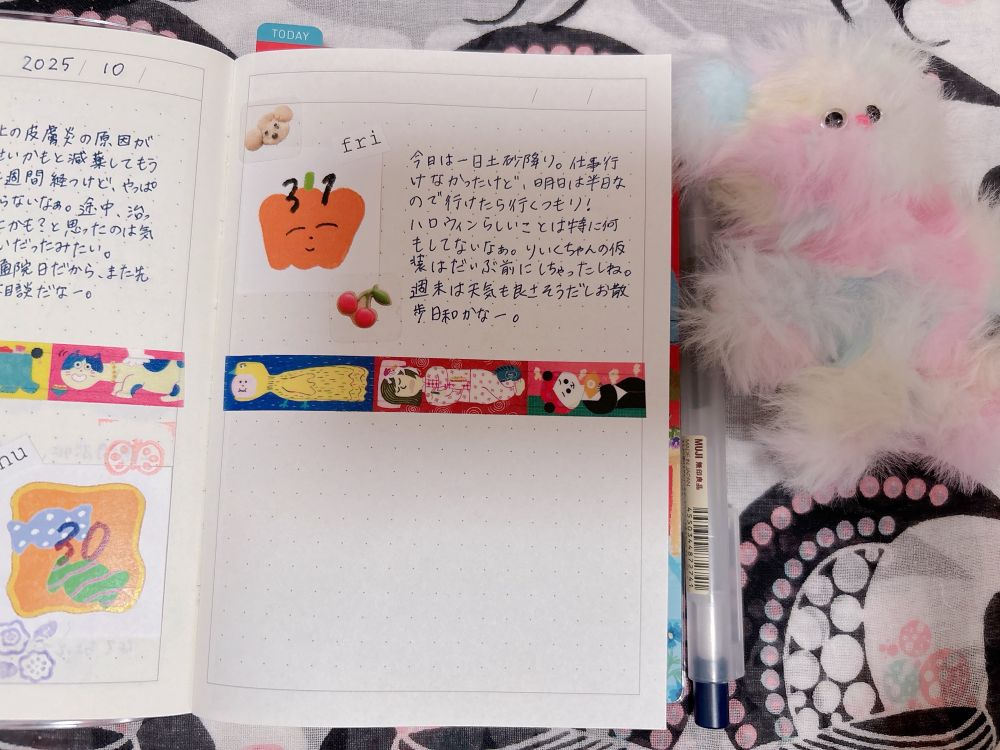 TODAY
2025 / 10 /
の皮膚炎の原因が
せいかもと減薬してもう
週間経つけど、やっぱ
らないなぁ。途中、治っ
かも?と思ったのは気
いだったみたい。
院日だから、また先
相談だなー。
30
/ /
fri
31
今日は一日土砂降り。仕事行
けなかったけど、明日は半日な
ので行けたら行くつもり!
ハロウィンらしいことは特に何
もしてないなぁ。りいくちゃんの仮
装はだいぶ前にしちゃったしね。
週末は天気も良さそうだしお散
歩日和かなー。
MUJI 無印良品
MADE IN JAPAN